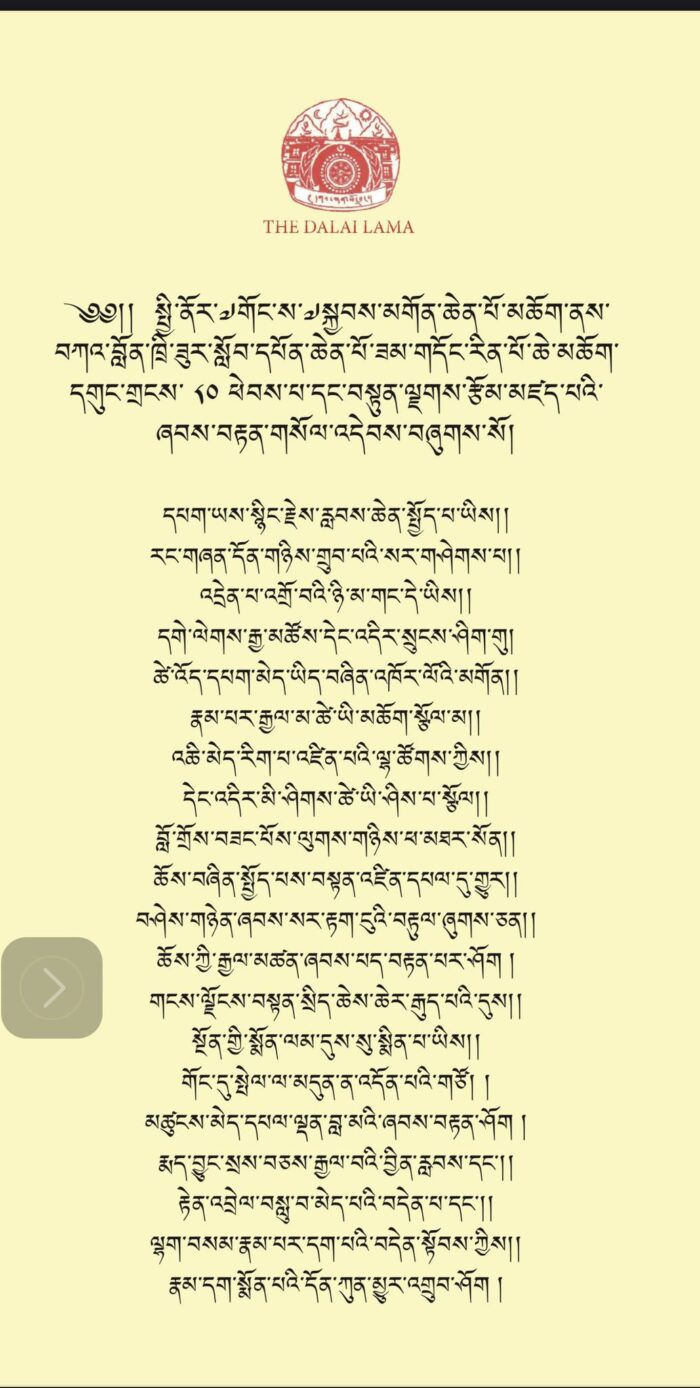 THE DALAI LAMA
༄༅།། སྤྱི་ནོར་༧གོང་ས་༧སྐྱབས་མགོན་ཆེན་པོ་མཆོག་ནས་
བཀའ་བློན་ཁྲི་ཟུར་སློབ་དཔོན་ཆེན་པོ་ཟམ་གདོང་རིན་པོ་ཆེ་མཆོག་
དགུང་གྲངས་ ༨༠ ཕེབས་པ་དང་བསྟུན་ལྗགས་རྩོམ་མཛད་པའི་
ཞབས་བརྟན་གསོལ་འདེབས་བཞུགས་སོ།
དཔག་ཡས་སྙིང་རྗེས་རླབས་ཆེན་སྤྱོད་པ་ཡིས།།
རང་གཞན་དོན་གཉིས་གྲུབ་པའི་སར་གཤེགས་པ།།
འདྲེན་པ་འགྲོ་བའི་ཉི་མ་གང་དེ་ཡིས།།
དགེ་ལེགས་རྒྱ་མཚོས་དེང་འདིར་སྲུངས་ཤིག་གུ།
ཚེ་འོད་དཔག་མེད་ཡིད་བཞིན་འཁོར་ལོའི་མགོན།།
རྣམ་པར་རྒྱལ་མ་ཚེ་ཡི་མཆོག་སྩོལ་མ།།
འཆི་མེད་རིག་པ་འཛིན་པའི་ལྷ་ཚོགས་ཀྱིས།།
དེང་འདིར་མི་ཤིགས་ཚེ་ཡི་ཤིས་པ་སྩོལ།།
བློ་གྲོས་བཟང་པོས་ལུགས་གཉིས་ཕ་མཐར་སོན།།
ཆོས་བཞིན་སྤྱོད་པས་བསྟན་འཛིན་དཔལ་དུ་གྱུར།།
བཤེས་གཉེན་ཞབས་སར་རྟག་ངུའི་བརྟུལ་ཞུགས་ཅན།།
ཆོས་ཀྱི་རྒྱལ་མཚན་ཞབས་པད་བརྟན་པར་ཤོག །
གངས་ལྗོངས་བསྟན་སྲིད་ཆེས་ཆེར་རྒུད་པའི་དུས།།
སྔོན་གྱི་སྨོན་ལམ་དུས་སུ་སྨིན་པ་ཡིས།།
གོང་དུ་སྤེལ་ལ་མདུན་ན་འདོན་པའི་གཙོ། །
མཚུངས་མེད་དཔལ་ལྡན་བླ་མའི་ཞབས་བརྟན་ཤོག །
རྨད་བྱུང་སྲས་བཅས་རྒྱལ་བའི་བྱིན་རླབས་དང་།།
རྟེན་འབྲེལ་བསླུ་བ་མེད་པའི་བདེན་པ་དང་།།
ལྷག་བསམ་རྣམ་པར་དག་པའི་བདེན་སྟོབས་ཀྱིས།།
རྣམ་དག་སྨོན་པའི་དོན་ཀུན་མྱུར་འགྲུབ་ཤོག །